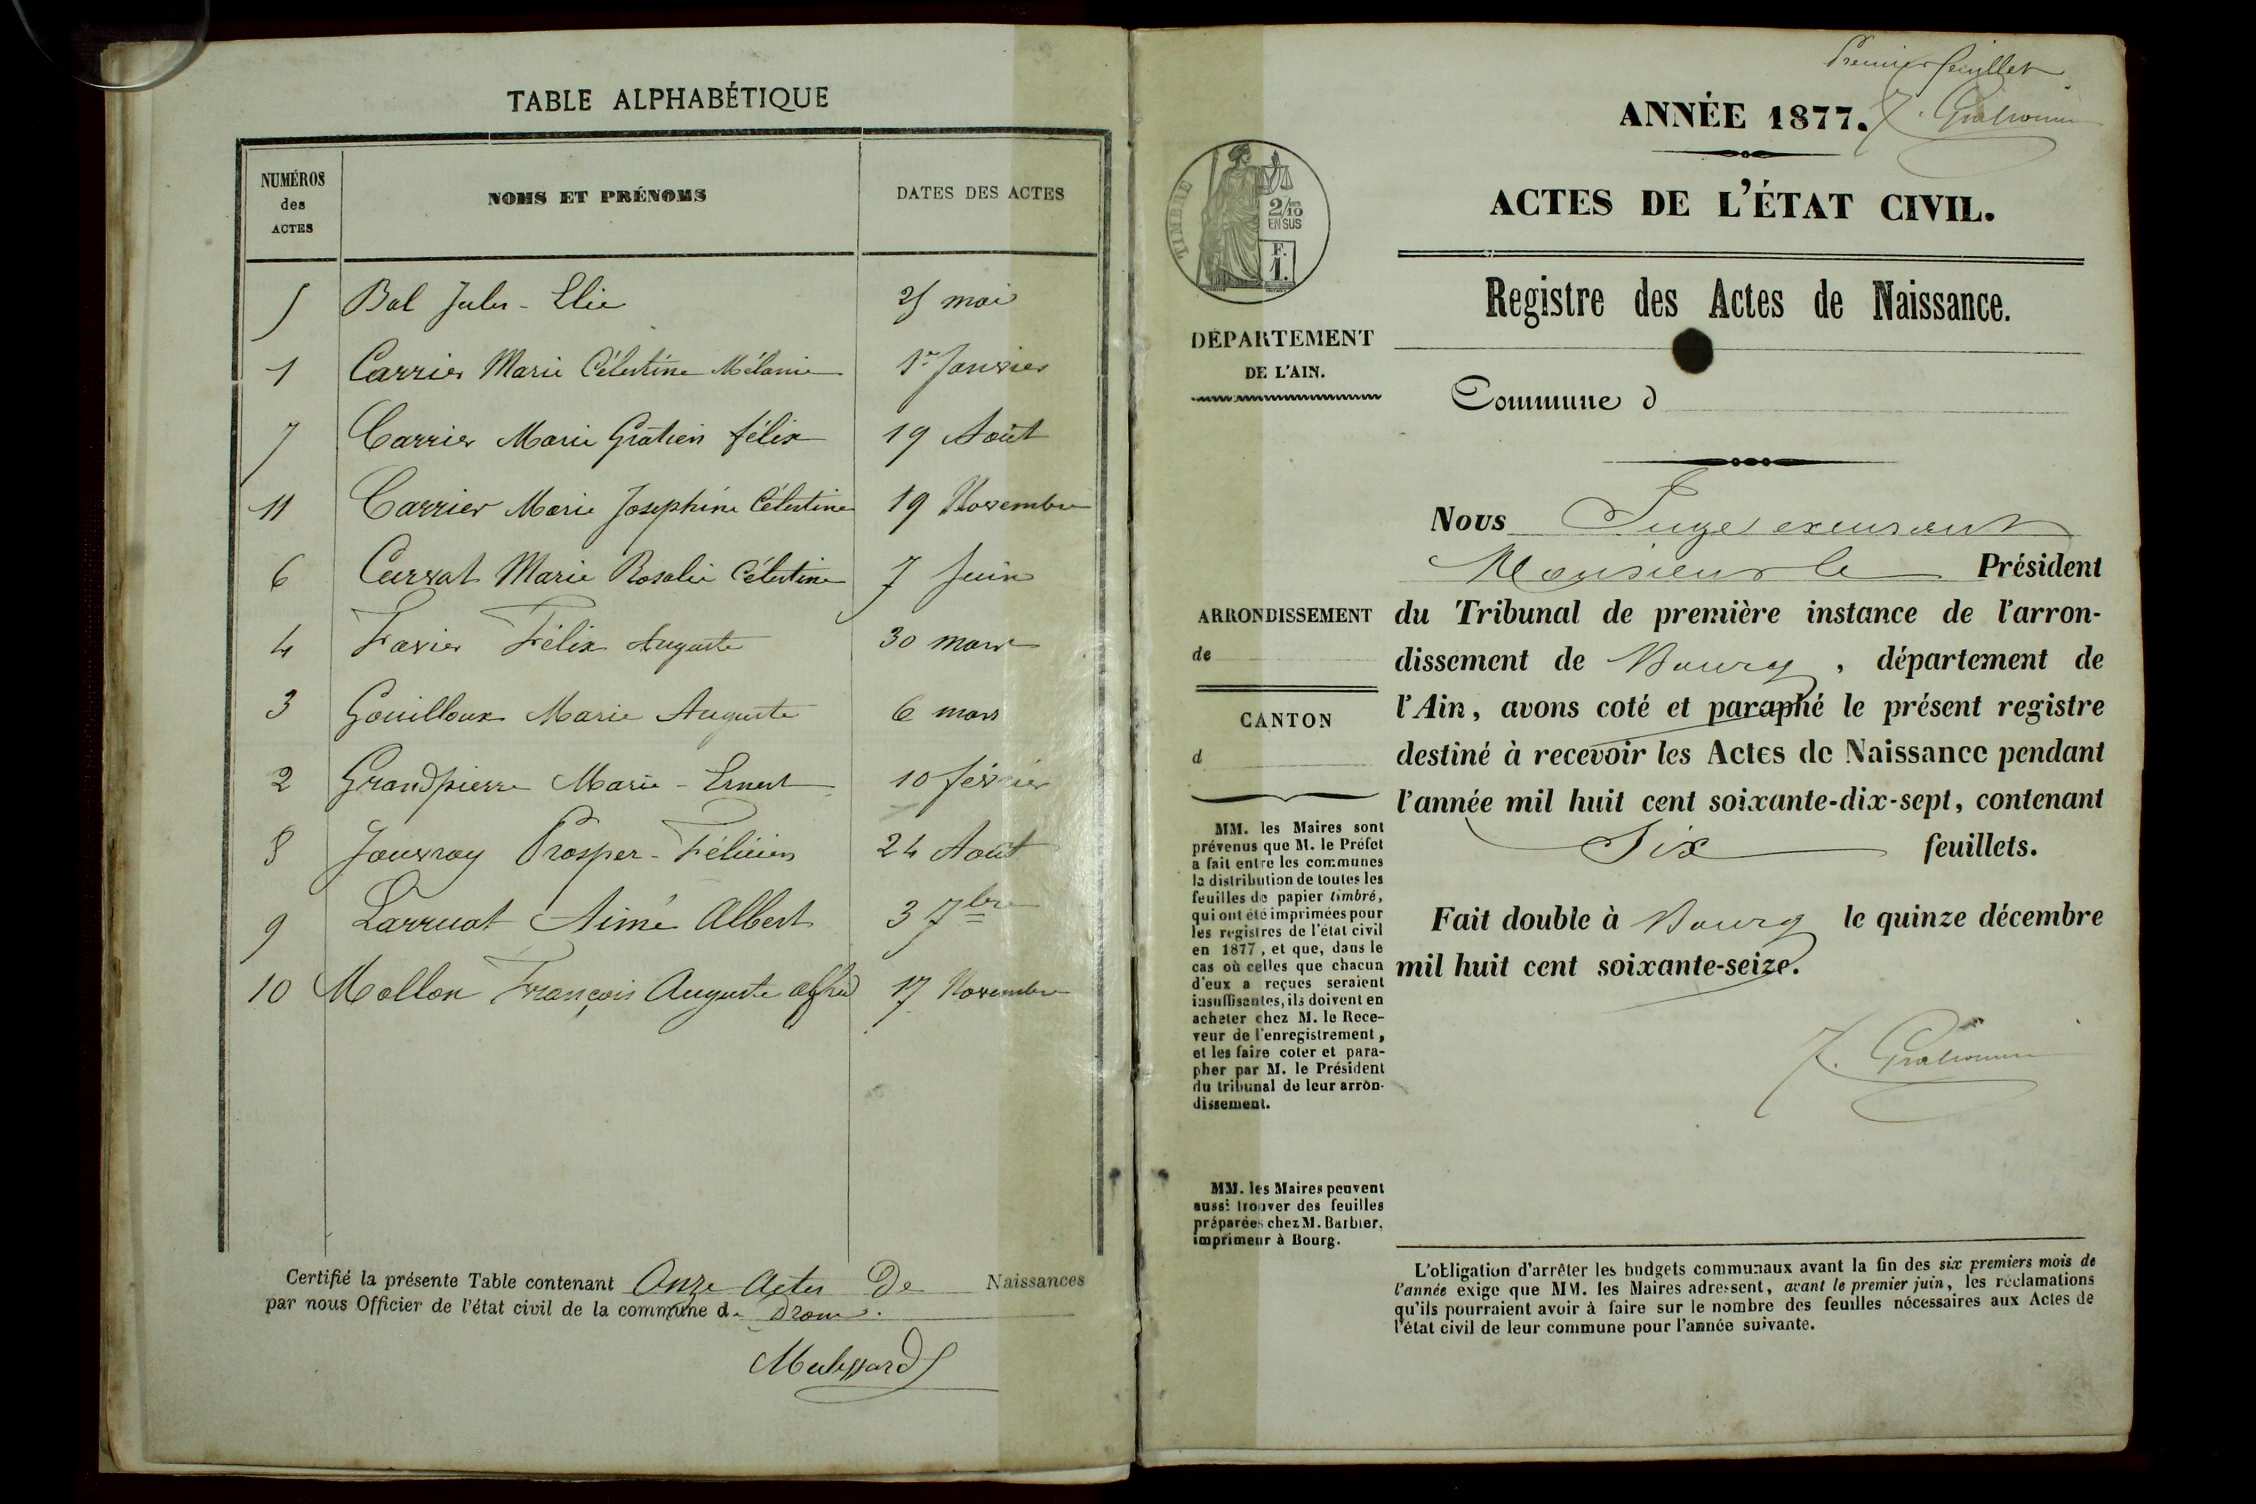 TABLE ALPHABÉTIQUE
NUMÉROS
des
ACTES
NOMS ET PRÉNOMS
DATES DES ACTES
5 Bal Jules - Elie 25 mai
1 Carrier Marie Célestine Mélanie 1er Janvier
7 Carrier Marie Gratien félix 19 Août
11 Carrier Marie Joséphine Célestine 19 Novembre
6 Curvat Marie Rosalie Célestine 7 Juin
4 Favier Félix Auguste 30 mars
3 Gouilloux Marie Auguste 6 mars
2 Grandpierre Marie - Ernest 10 février
8 Jouvray Prosper - Félicien 24 Août
9 Larruat Aimé Albert 3 7bre
10 Mollon François Auguste 17 Novembre
Certifié la présente Table contenant Onze Actes De Naissances
par nous Officier de l'état civil de la commune de Drom.
Premier feuillet
ANNÉE 1877.
ACTES DE L'ÉTAT CIVIL.
TIMBRE
2/10
EN SUS
F.
1.
Registre des Actes de Naissance.
DÉPARTEMENT
DE L'AIN.
Commune d
Nous Juge excusant
Monsieur le Président
ARRONDISSEMENT
de
CANTON
d
du Tribunal de première instance de l'arron-
dissement de Bourg, département de
l'Ain, avons coté et paraphé le présent registre
destiné à recevoir les Actes de Naissance pendant
l'année mil huit cent soixante-dix-sept, contenant
Six feuillets.
Fait double à Bourg le quinze décembre
mil huit cent soixante-seize.
MM. les Maires sont
prévenus que M. le Préfet
a fait entre les communes
la distribution de toutes les
feuilles de papier timbré,
qui ont été imprimées pour
les registres de l'état civil
en 1877, et que, dans le
cas où celles que chacun
d'eux a reçues seraient
insuffisantes, ils doivent en
acheter chez M. le Rece-
veur de l'enregistrement,
et les faire coter et para-
pher par M. le Président
du tribunal de leur arron-
dissement.
MM. les Maires peuvent
aussi trouver des feuilles
préparées chez M. Barbier,
imprimeur à Bourg.
L'obligation d'arrêter les budgets communaux avant la fin des six premiers mois de
l'année exige que MM. les Maires adressent, avant le premier juin, les réclamations
qu'ils pourraient avoir à faire sur le nombre des feuilles nécessaires aux Actes de
l'état civil de leur commune pour l'année suivante.